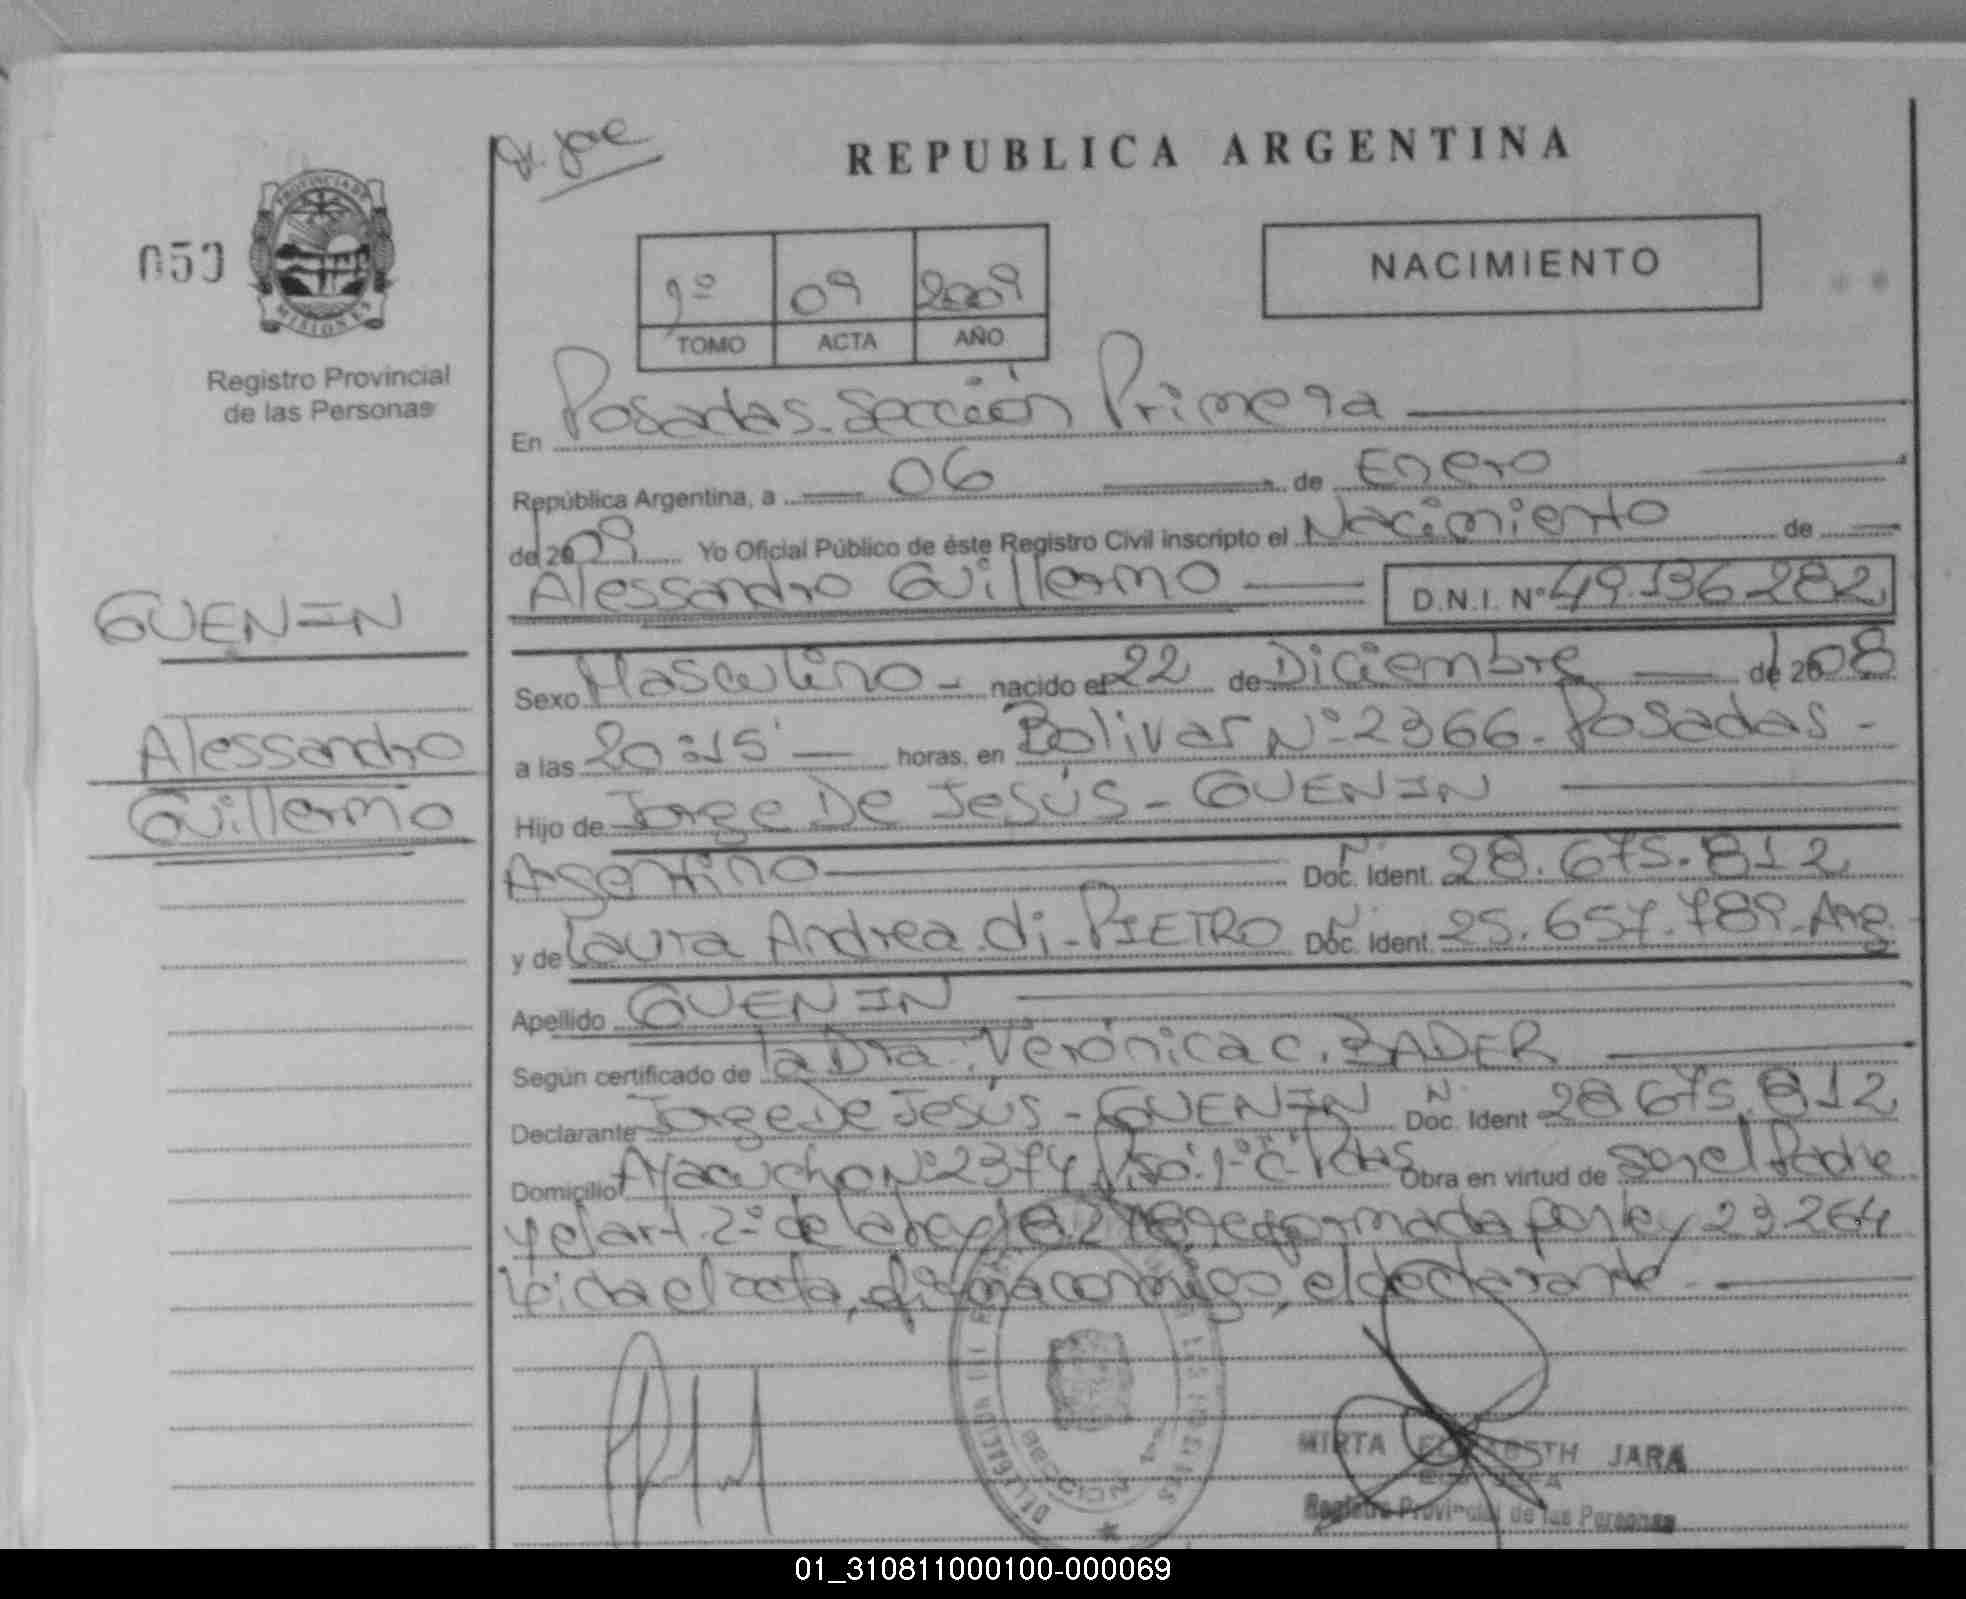 REPUBLICA ARGENTINA
PROVINCIA DE
MISIONES
Registro Provincial
de las Personas
NACIMIENTO
1º 09 2009
TOMO ACTA AÑO
En Posadas. Sección Primera
República Argentina, a 06 de Enero
de 2009 Yo Oficial Público de éste Registro Civil inscripto el Nacimiento de
Alessandro Guillermo D.N.I. Nº 49.136.282
Sexo Masculino - nacido el 22 de Diciembre de 2008
a las 20:15' horas, en Bolivar Nº 2366. Posadas -
Hijo de Jorge De Jesús - GUENIN
Argentino Doc. Ident. Nº 28.675.812
y de Laura Andrea di - PIETRO Doc. Ident. Nº 25.657.789. Arg.
Apellido GUENIN
Según certificado de la Dra. Verónica C. BADER
Declarante Jorge De Jesús - GUENIN Doc. Ident Nº 28.675.812
Domicilio Ayacucho Nº 2374 Piso: 1º "C" Pdas Obra en virtud de ser el Padre
y el art. 2º de la ley reformada por ley 23264
leida el acta, firma conmigo, el declarante
GUENIN
Alessandro
Guillermo
MIRTA ELIZABETH JARA
Registro Provincial de las Personas
01_310811000100-000069